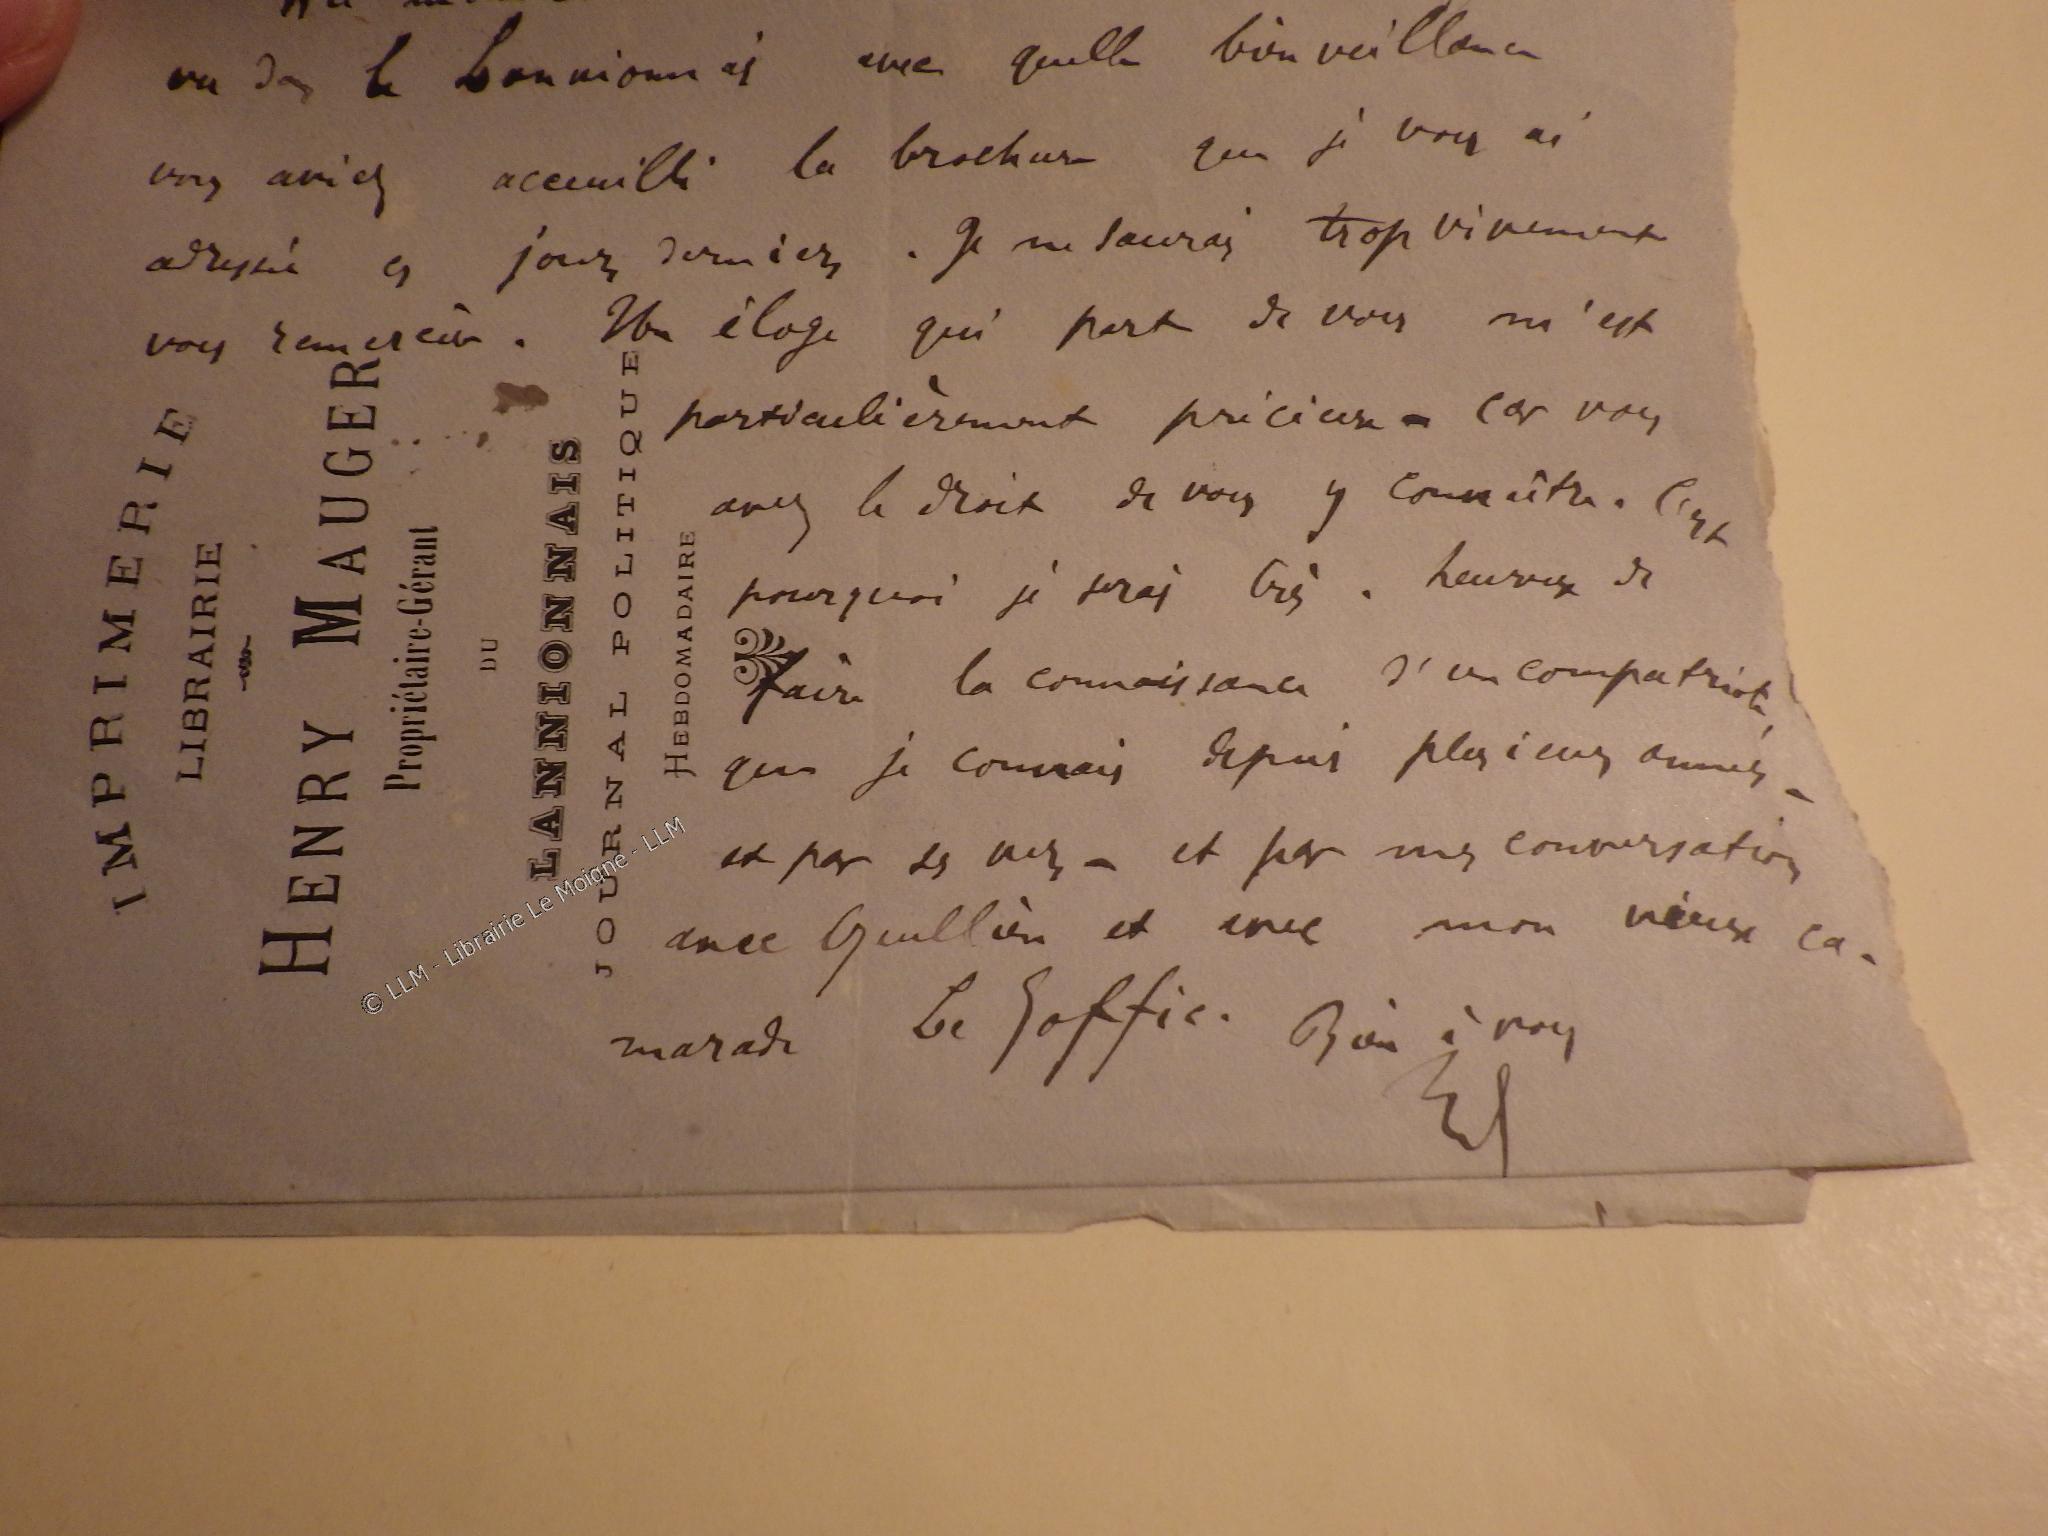 vu dans le Lannionnais avec quelle bienveillance
vous aviez accueilli la brochure que je vous ai
adressée ces jours derniers. Je ne saurais trop vivement
vous remercier. Un éloge qui part de vous m'est
particulièrement précieux - car vous
avez le droit de vous y connaître. C'est
pourquoi je serais très heureux de
faire la connaissance d'un compatriote,
que je connais depuis plusieurs années -
et par ses vers - et par mes conversations
avec Quellien et avec mon vieux ca-
marade Le Goffic. Bien à vous
IMPRIMERIE
LIBRAIRIE
HENRY MAUGER
Propriétaire-Gérant
DU
LANNIONNAIS
JOURNAL POLITIQUE
HEBDOMADAIRE
© LLM - Librairie Le Moigne - LLM